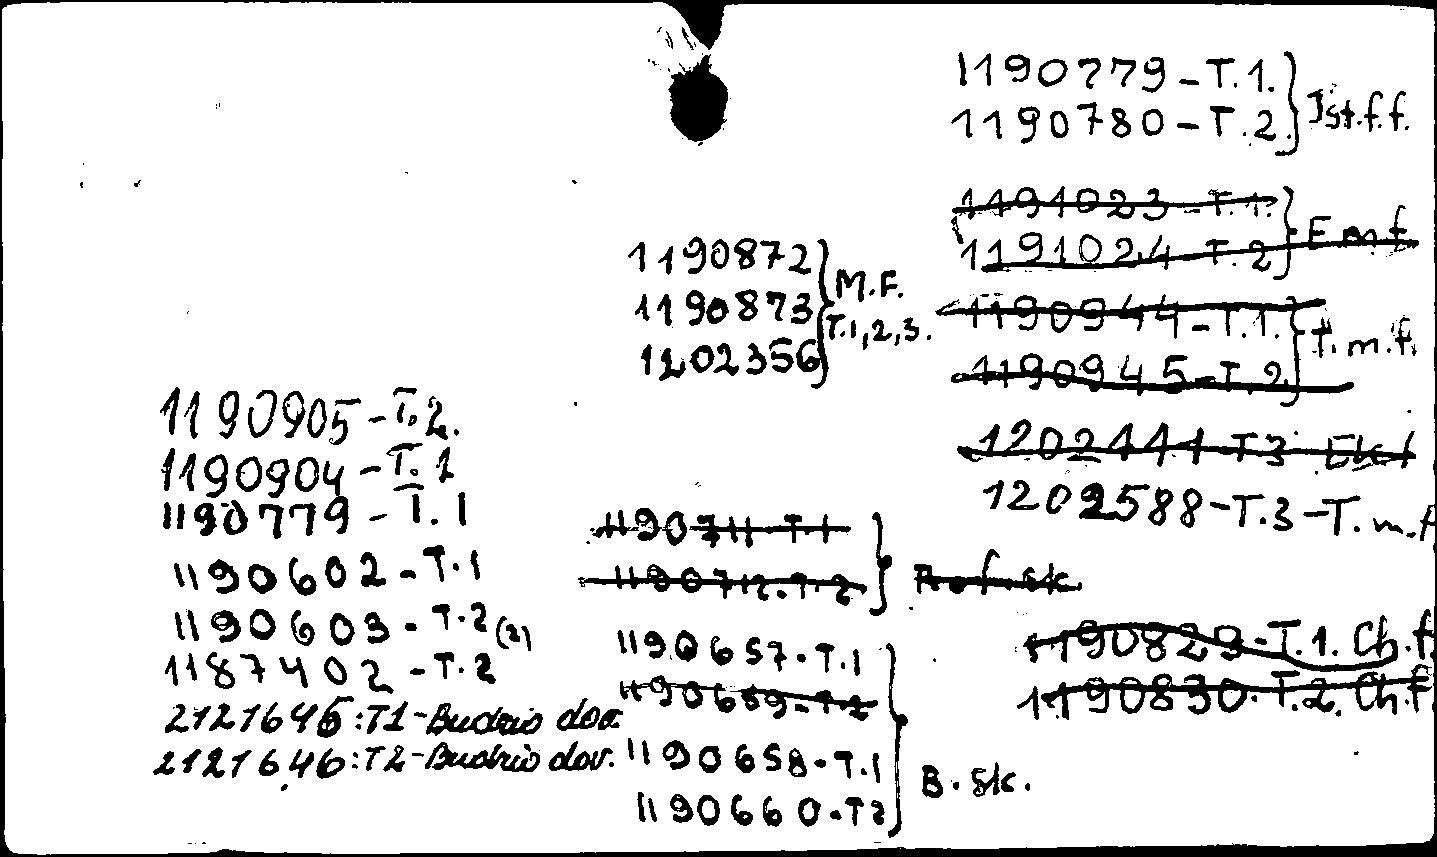 1190905-T.2.
1190904-T.1
1190779-T.1
1190602-T.1
1190603-T.2(2)
1187402-T.2
2121645:T1-Budrio dov.
2121646:T2-Budrio dov.
1190872
1190873
1202356
M.F.
T.1,2,3.
1190711-T.1
1190712-T.2
R.of.sk.
1190657-T.1
1190659-T.2
1190658-T.1
1190660-T2
B.sk.
1190779-T.1.
1190780-T.2.
Ist.f.f.
1191023-T.1.
1191024-T.2
F.m.f.
1190944-T.1.
1190945-T.2.
T.m.f.
1202111-T3
1202588-T.3-T.m.f
1190829-T.1. Ch.f.
1190830-T.2. Ch.f.